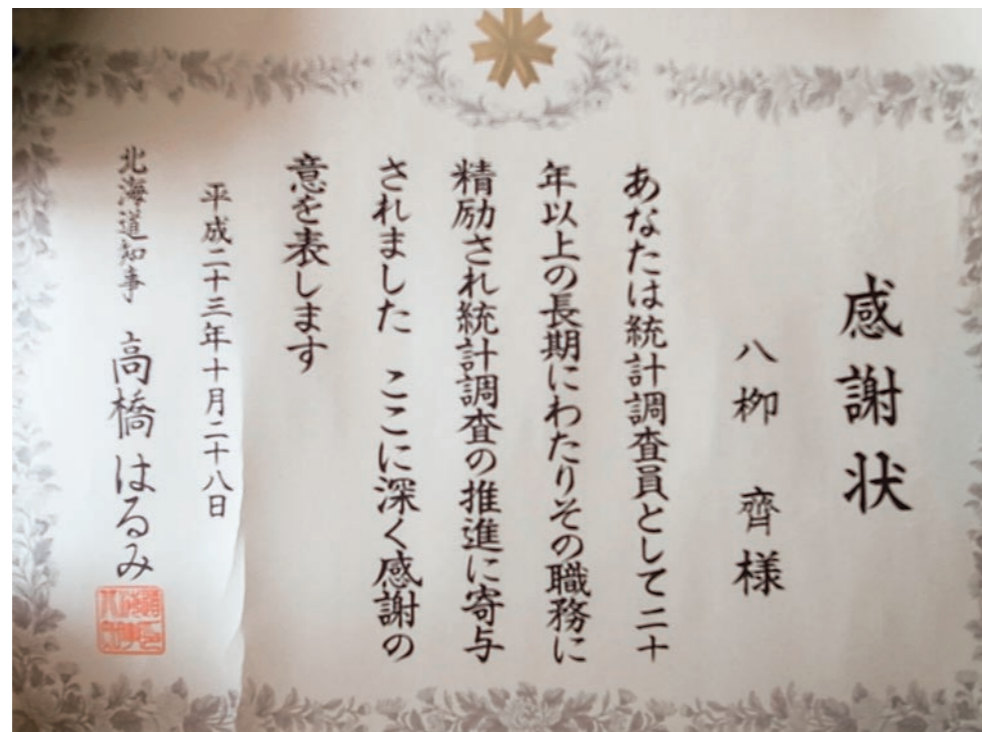 感謝状
八柳 齊様
あなたは統計調査員として二十
年以上の長期にわたりその職務に
精励され統計調査の推進に寄与
されました ここに深く感謝の
意を表します
平成二十三年十月二十八日
北海道知事 高橋はるみ